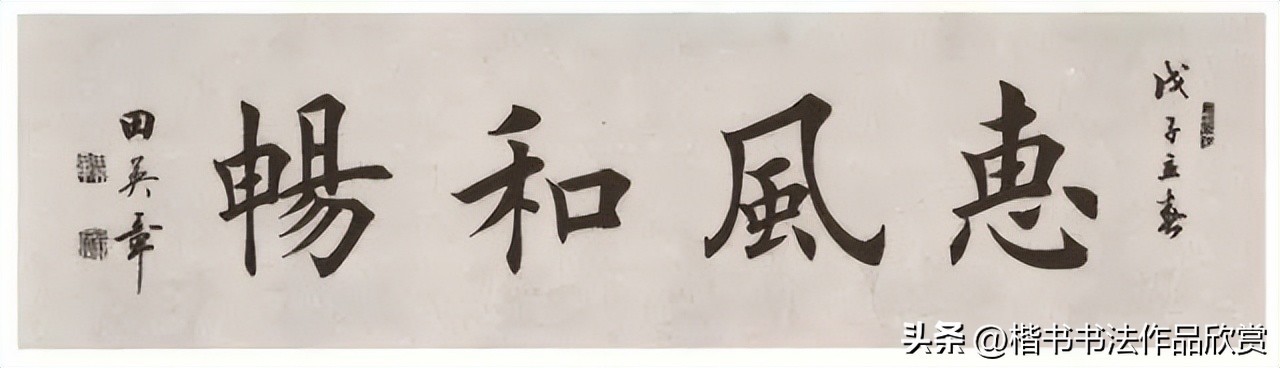 戊子孟春
惠風和暢
田英章
头条 @楷书书法作品欣赏